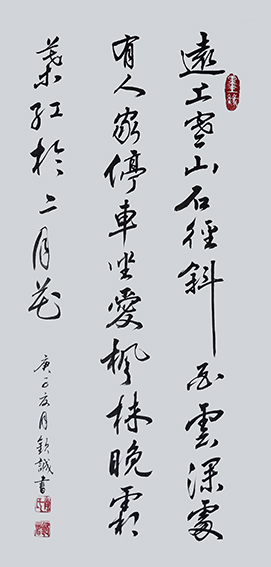 遠上寒山石徑斜白雲深處
有人家停車坐愛楓林晚霜
葉紅於二月花
庚子夏月欽誠書